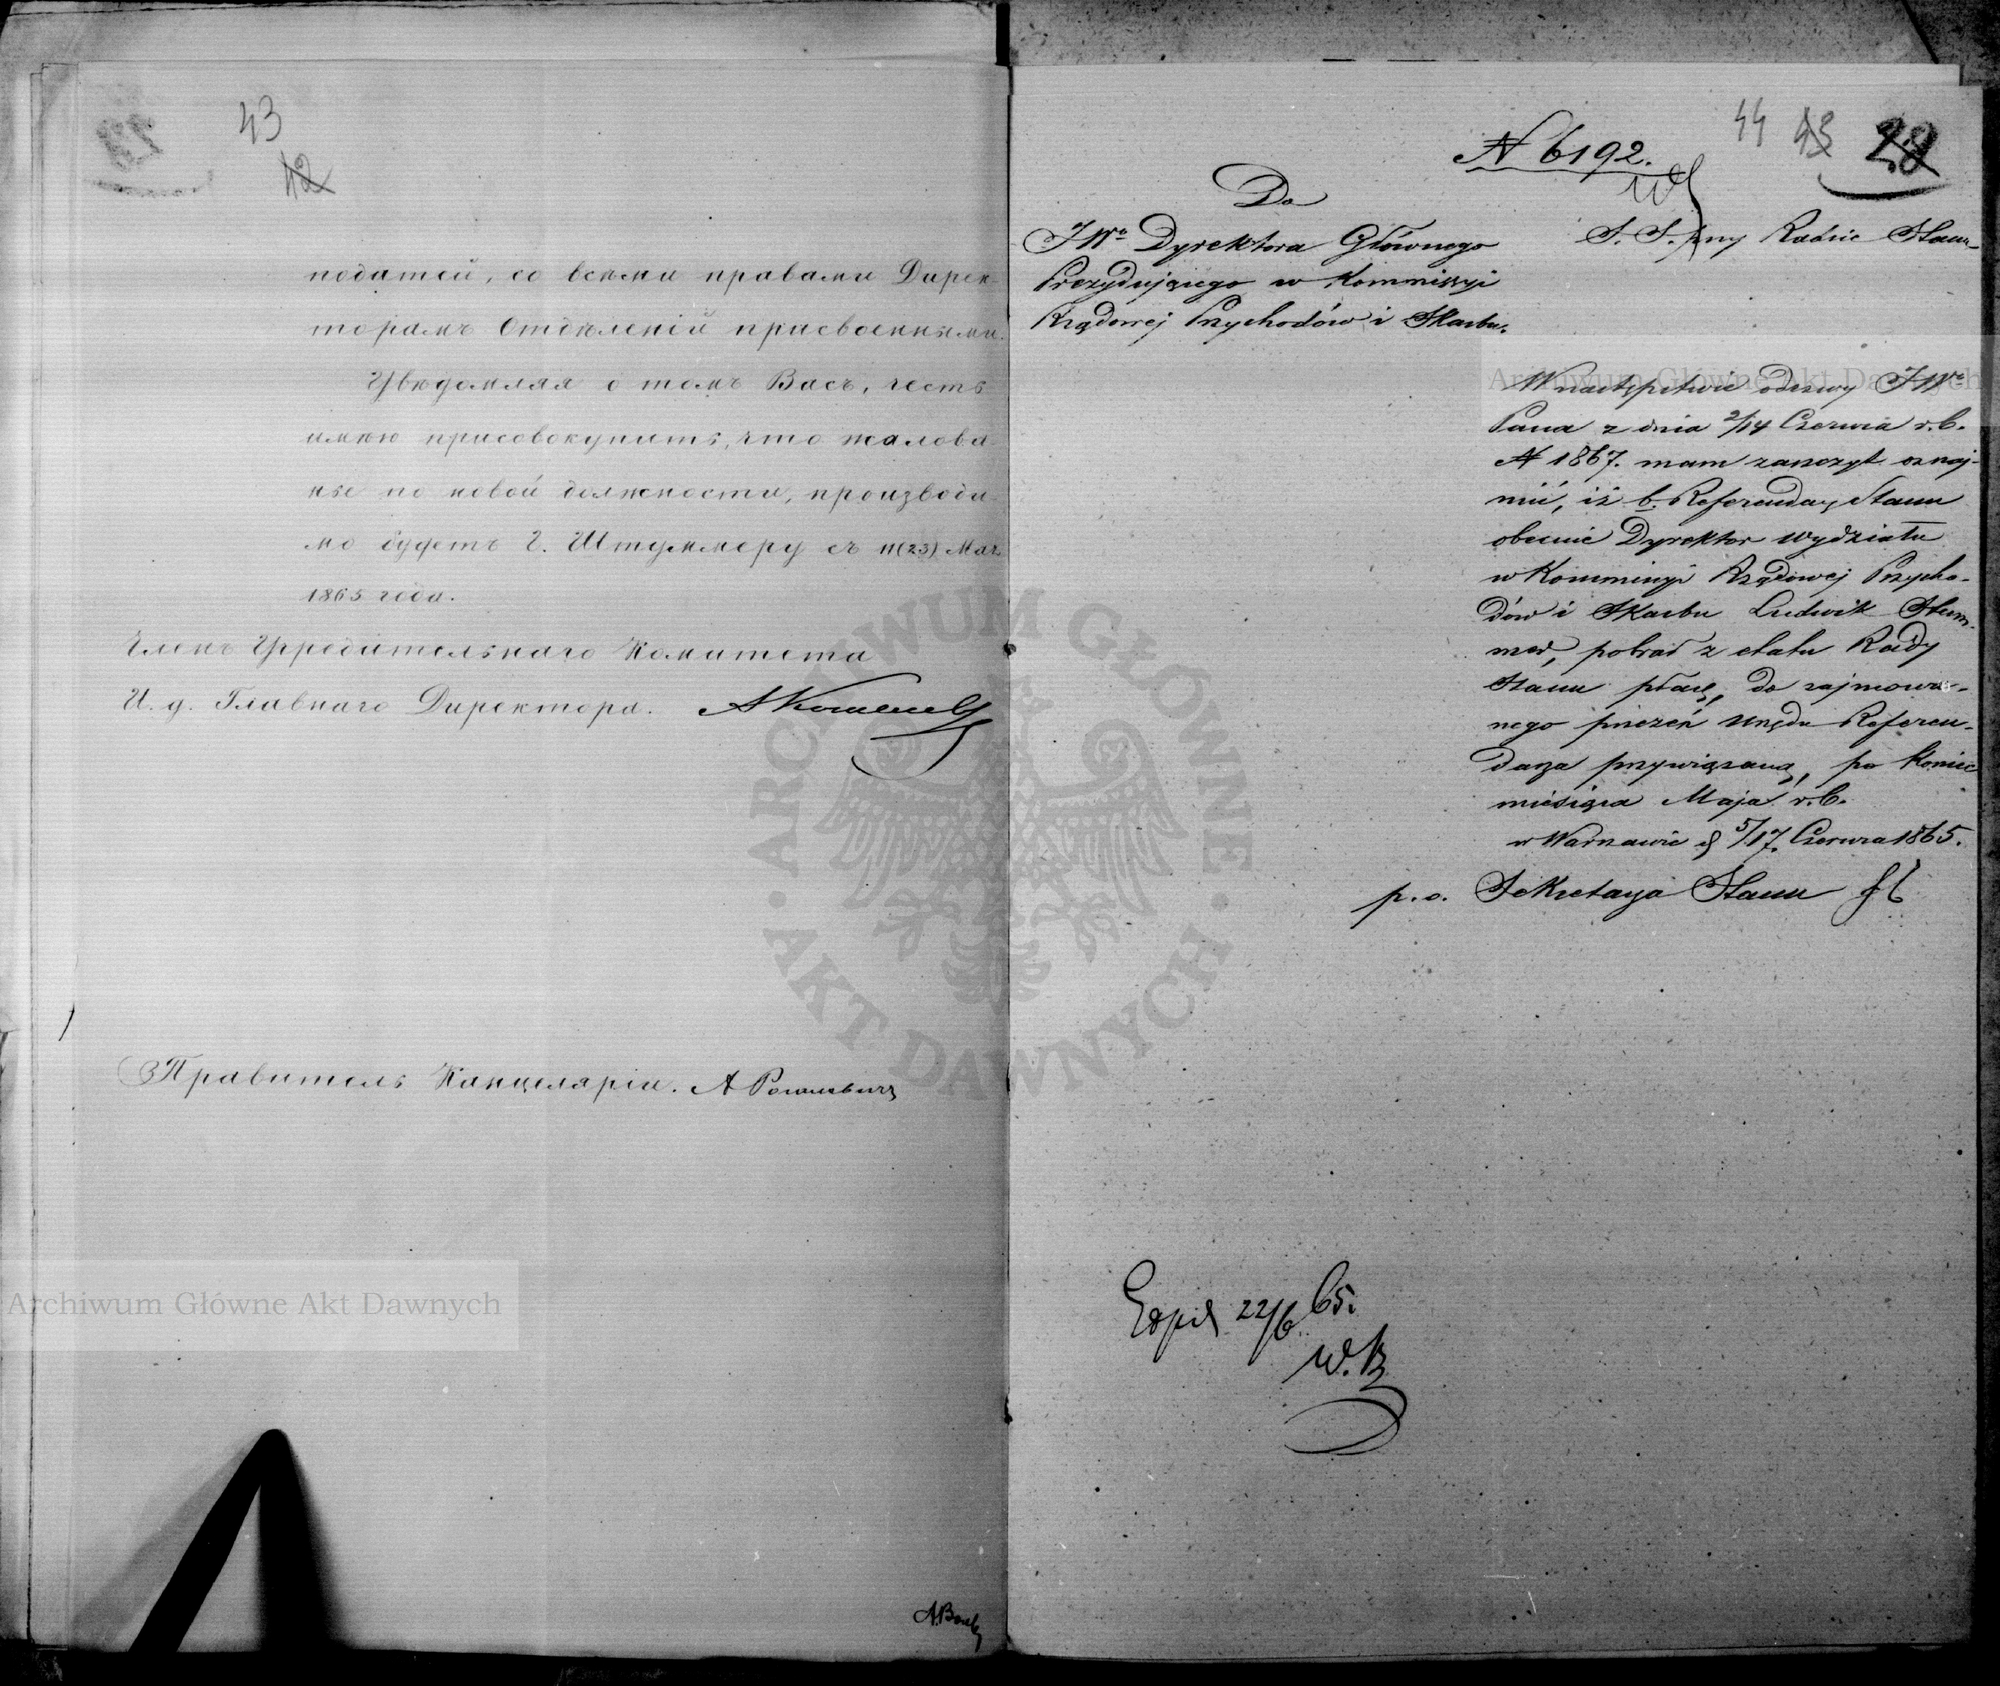 43
42
податей, со всѣми правами Дирек-
торамъ Отдѣленій присвоенными.
Увѣдомляя о томъ Васъ, честь
имѣю присовокупить, что жалова-
нье по новой должности, производи-
мо будетъ Г. Штуммеру съ 11(23) Мая
1865 года.
Членъ Учредительнаго Комитета
И. д. Главнаго Директора. АКошелевъ
Правитель Канцеляріи.
Archiwum Główne Akt Dawnych
ARCHIWUM GŁÓWNE
AKT DAWNYCH
44 43 28
N 6192.
Do
JWo Dyrektora Głównego
Prezydującego w Kommissyi
Rządowej Przychodów i Skarbu.
S. S. przy Radzie Stanu
Archiwum Główne Akt Dawnych
W następstwie odezwy JWo
Pana z dnia 2/14 Czerwca r.b.
N 1867. mam zaszczyt oznaj-
mić, iż b. Referendarz Stanu
obecnie Dyrektor Wydziału
w Kommissyi Rządowej Przycho-
dów i Skarbu Ludwik Stum-
mer, pobrał z etatu Rady
Stanu płacę, do zajmowa-
nego przezeń Urzędu Referen-
darza przywiązaną, po koniec
miesiąca Maja r.b.
w Warszawie d 5/17 Czerwca 1865.
p.o. Sekretarza Stanu
Exped 22/6 65.
W.R